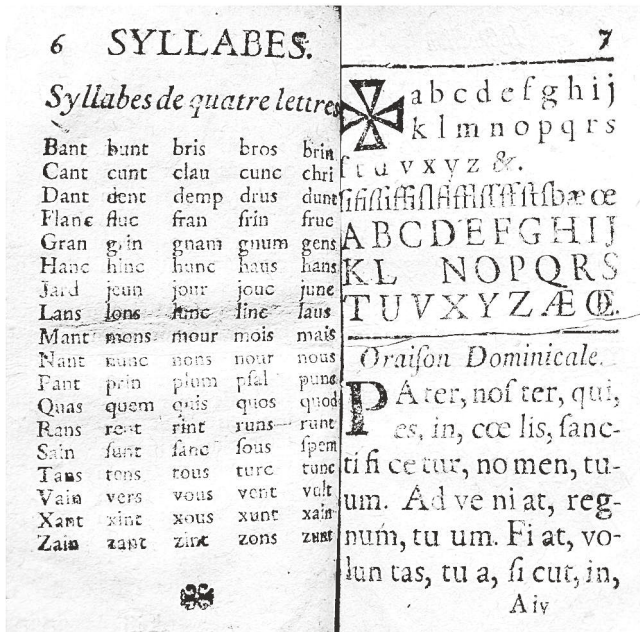 6 SYLLABES.
Syllabes de quatre lettres
Bant bunt bris bros brin
Cant cunt clau cunc chri
Dant dent demp drus dunt
Flanc fluc fran frin fruc
Gran grin gnam gnum gens
Hanc hinc hunc haus hans
Jard jeun jour jouc june
Lans lons linc laus
Mant mons mour mois mais
Nant nunc nons nour nous
Pant prin plum pſal punc
Quas quem quis quos quod
Rans rent rint runs runt
Sain ſunt ſanc ſous ſpem
Tans tens tous turc tunc
Vain vers vous vent vult
Xant xint xous xunt xain
Zain zant zint zons zunt
7
a b c d e f g h i j
k l m n o p q r s
ſ t u v x y z &.
æ œ
A B C D E F G H I J
K L N O P Q R S
T U V X Y Z Æ Œ.
Oraiſon Dominicale.
PAter, noſ ter, qui,
es, in, cœ lis, ſanc-
ti fi ce tur, no men, tu-
um. Ad ve ni at, reg-
num, tu um. Fi at, vo-
lun tas, tu a, ſi cut, in,
A iv